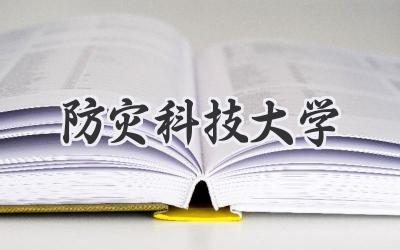 防灾科技大学